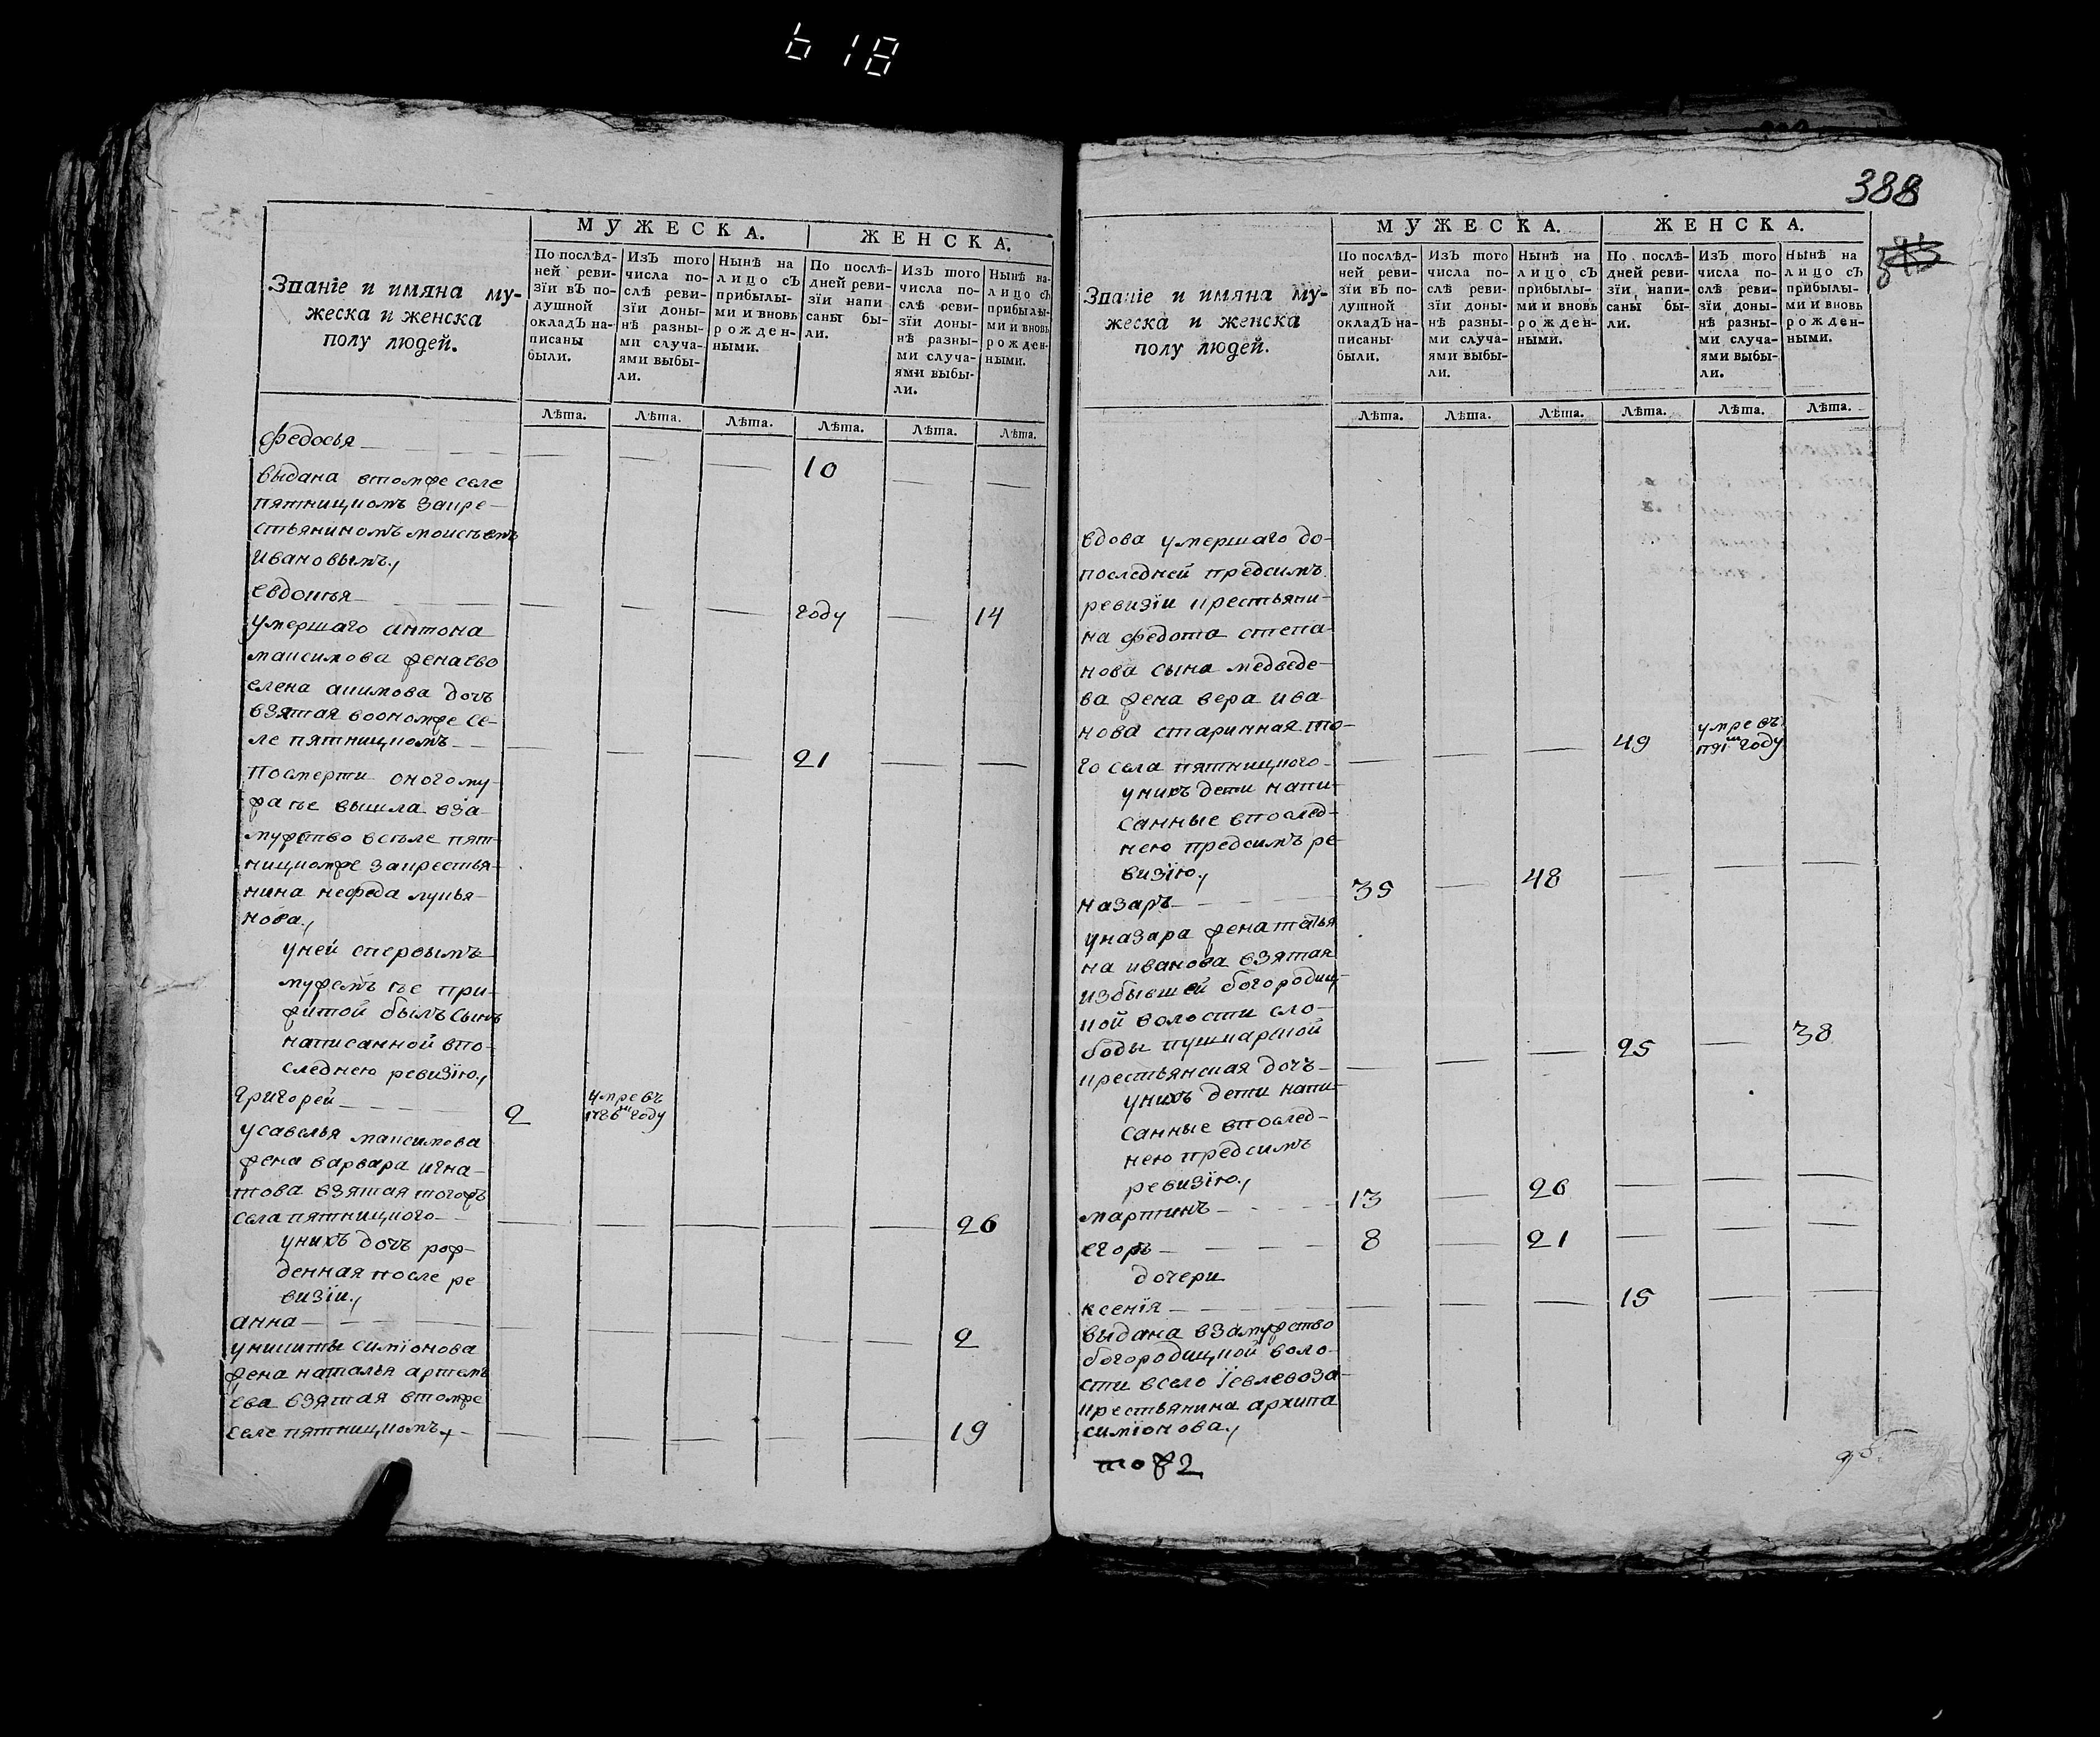 618
МУЖЕСКА. ЖЕНСКА.
Званіе и имяна му-
жеска и женска
полу людей.
По послѣд-
ней реви-
зіи вЪ по-
душной
окладЪ на-
писаны
были.
ИзЪ того
числа по-
слѣ реви-
зіи доны-
нѣ разны-
ми случа-
ями выбы-
ли.
Нынѣ на
лицо сЪ
прибылы-
ми и вновь
рожден-
ными.
По послѣ-
дней реви-
зіи напи
саны бы-
ли.
ИзЪ того
числа по-
слѣ реви-
зіи доны-
нѣ разны-
ми случа-
ями выбы-
ли.
Нынѣ на-
лицо сЪ
прибылы-
ми и вновь
рожден-
ными.
Лѣта. Лѣта. Лѣта. Лѣта. Лѣта. Лѣта.
федосья — — — — 10 — —
выдана втомже селе
пятницкомъ закре-
стьяниномъ моисѣемъ
ивановымъ.,
евдокѣя — — — — году — 14
умершаго антона
максимова женаево
елена акимова дочь
взятая воономже се-
ле пятницкомъ — — — 21 — —
посмерти оногому-
жа ѣе вышла вза-
мужство всѣле пят-
ницкомже закрестья-
нина нефеда лукья-
нова.,
уней спервымъ
мужемъ ѣе при-
житой былъ сынъ
написанной впо-
следнею ревизїю.,
григорей — 2 умре въ
1786м году
усавелья максимова
жена варвара игна-
това взятая тогожъ
села пятницкого — — — — — 26
унихъ дочь рож-
денная после ре
визїи.,
анна — — — — — — 2
уникиты симїонова
жена наталья артемь
ева взятая втомже
селе пятницкомъ, — — — — — 19
388
МУЖЕСКА. ЖЕНСКА.
Званіе и имяна му-
жеска и женска
полу людей.
По послѣд-
ней реви-
зіи вЪ по-
душной
окладЪ на-
писаны
были.
ИзЪ того
числа по-
слѣ реви-
зіи доны-
нѣ разны-
ми случа-
ями выбы-
ли.
Нынѣ на
лицо сЪ
прибылы-
ми и вновь
рожден-
ными.
По послѣ-
дней реви-
зіи напи-
саны бы-
ли.
ИзЪ того
числа по-
слѣ реви-
зіи доны-
нѣ разны-
ми случа-
ями выбы-
ли.
Нынѣ на
лицо сЪ
прибылы-
ми и вновь
рожден-
ными.
Лѣта. Лѣта. Лѣта. Лѣта. Лѣта. Лѣта.
вдова умершаго до-
последней предсимъ
ревизїи крестьяни-
на федота степа-
нова сына медведе-
ва жена вера ива-
нова старинная то-
го села пятницкого — — — 49 умре въ
году
унихъ дети напи-
санные впослед-
нею предсимъ ре-
визїю.,
назаръ — 35 — 48 — — —
уназара жена татья
на иванова взятая
избывшей богородиц-
кой волости сло-
боды пушкарной
крестьянская дочь — — — 25 — 38
унихъ дети напи-
санные впослед-
нею предсимъ
ревизїю.,
мартинъ — 13 — 26 — — —
егоръ — 8 — 21 — — —
дочери
ксенїя — — — — 15 — —
выдана взамужство
богородицкой воло-
сти всело їевлевоза-
крестьянина архипа
симїонова.,